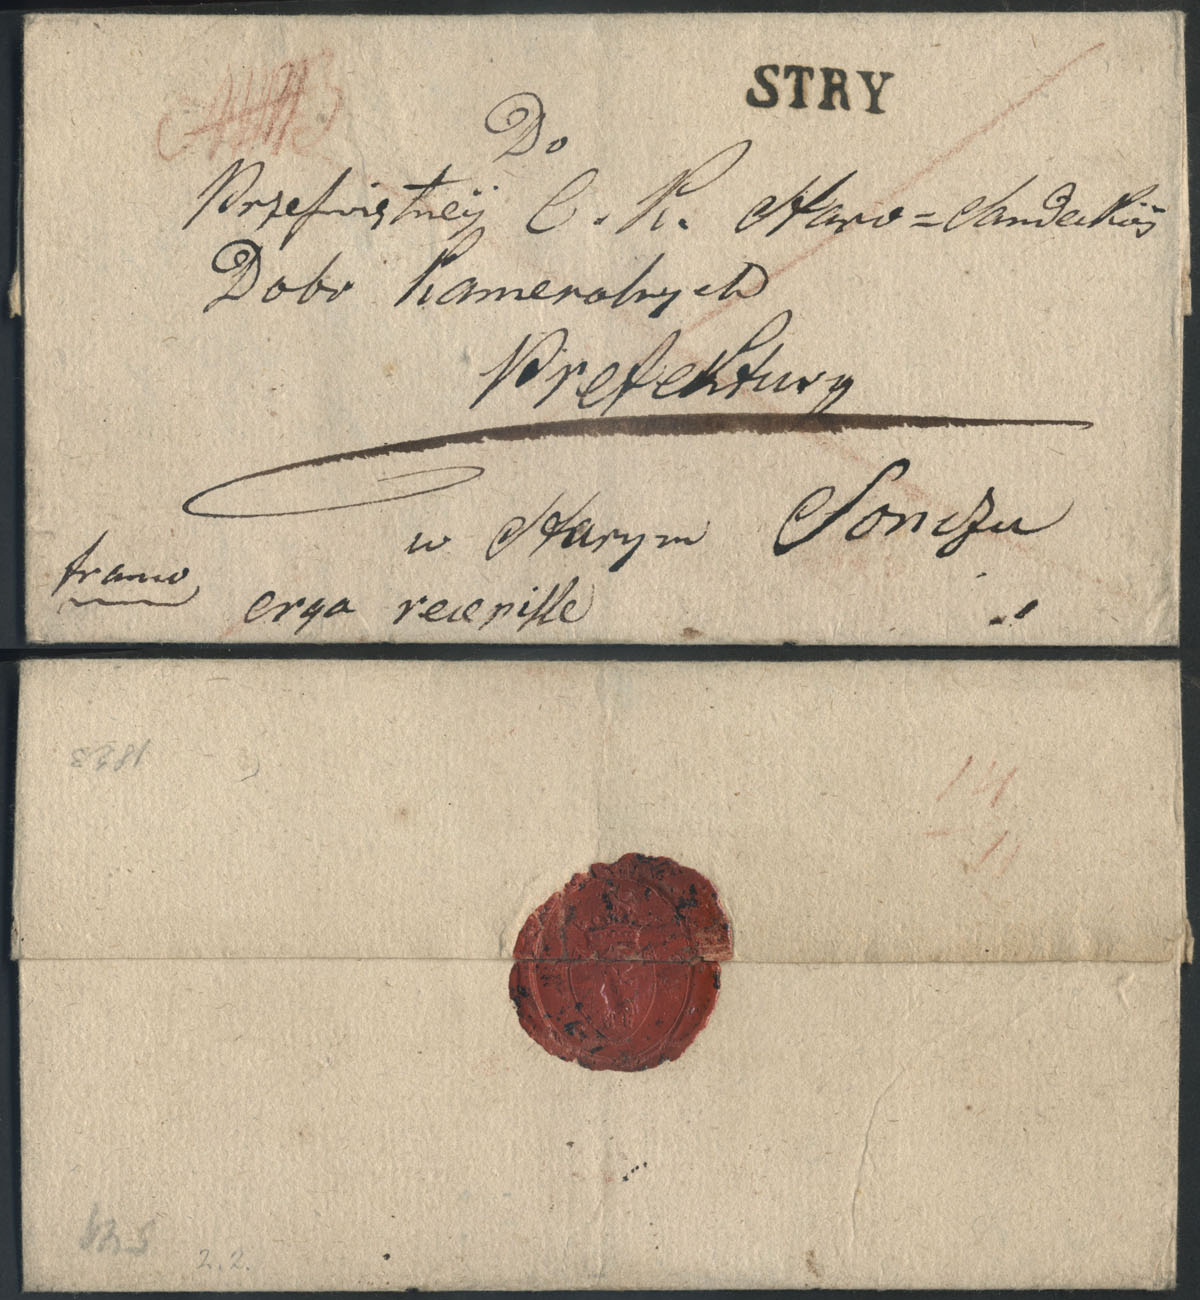 STRY
Do
Przeswiętneÿ C. K. Staro=Sandeckiéÿ
Dobr Kameralnych
Prefektury
w Starym Sonczu
franco
erga recepisse
1833
14
11
2.2.